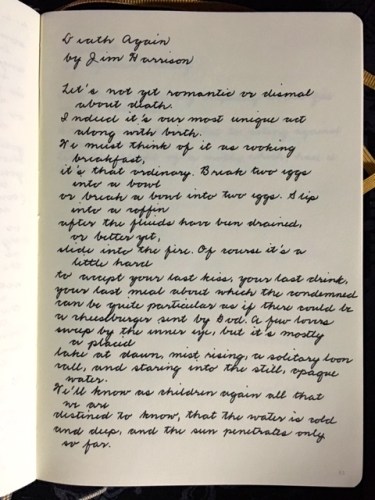 Death Again
by Jim Harrison
Let's not get romantic or dismal
about death.
Indeed it's our most unique act
along with birth.
We must think of it as cooking
breakfast,
it's that ordinary. Break two eggs
into a bowl
or break a bowl into two eggs. Slip
into a coffin
after the fluids have been drained,
or better yet,
slide into the fire. Of course it's a
little hard
to accept your last kiss, your last drink,
your last meal about which the condemned
can be quite particular as if there could be
a cheeseburger sent by God. A few lovers
sweep by the inner eye, but it's mostly
a placid
lake at dawn, mist rising, a solitary loon
call, and staring into the still, opaque
water.
We'll know as children again all that
we are
destined to know, that the water is cold
and deep, and the sun penetrates only
so far.